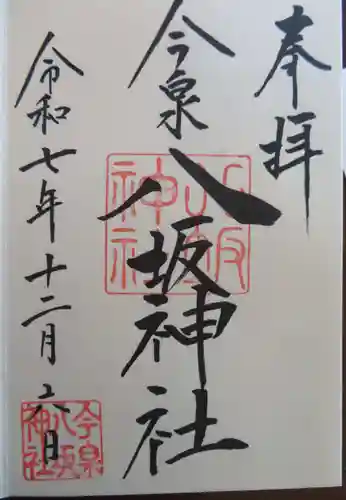 奉拝
今泉
八坂神社
令和七年十二月二六日
八坂神社
今泉八坂神社